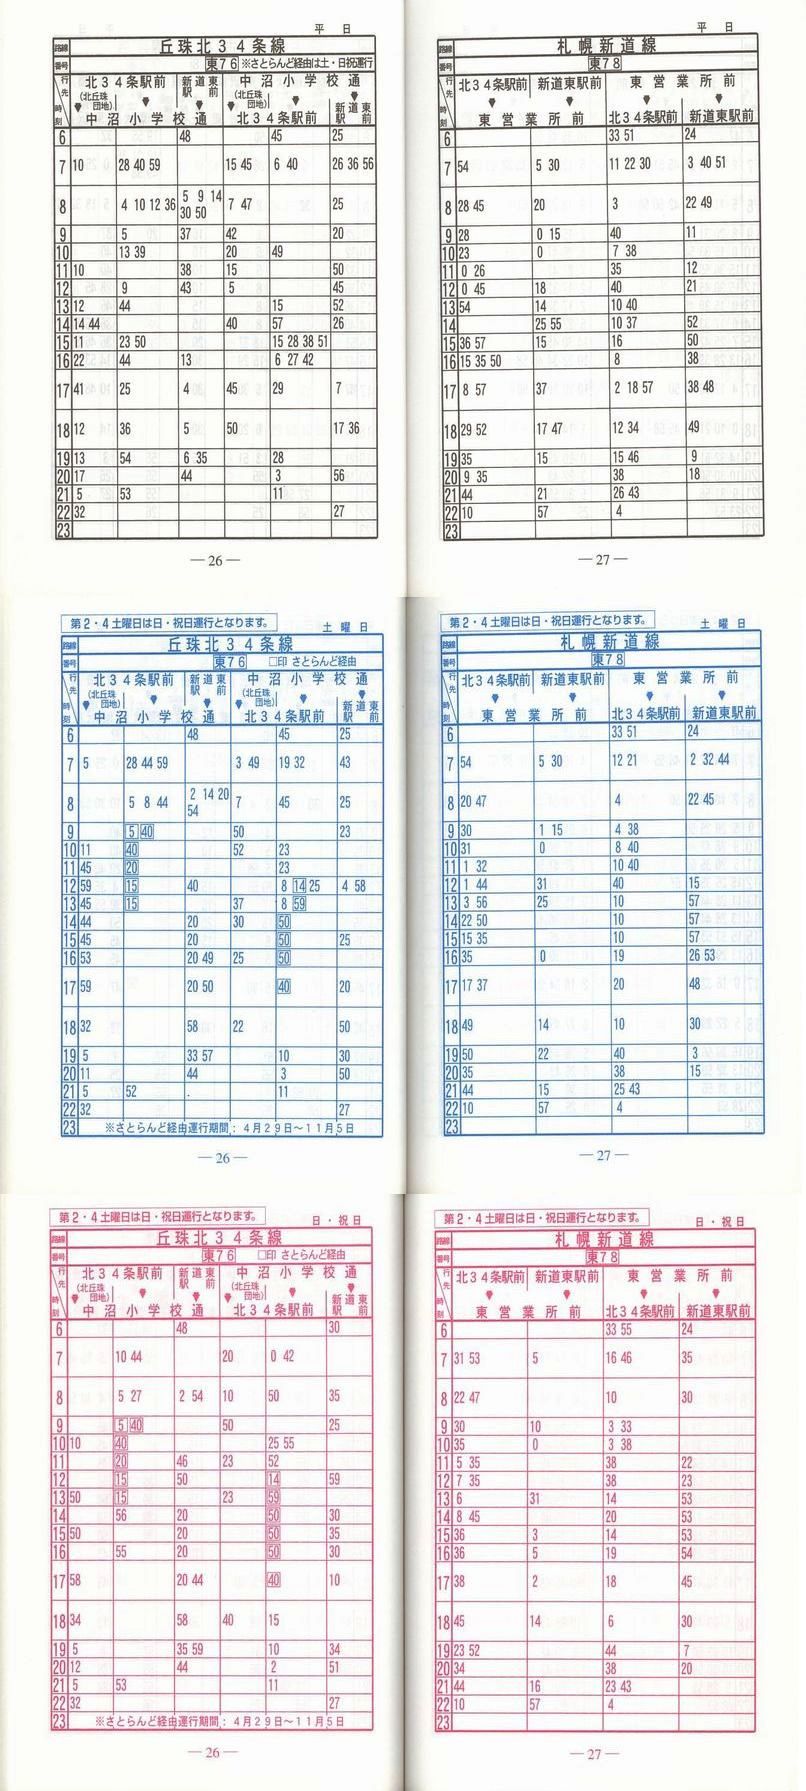 平 日
路線 丘珠北34条線
番号 東76 ※さとらんど経由は土・日祝運行
行先 北34条駅前 新道東駅前 中沼小学校通
(北丘珠団地) (北丘珠団地)
時刻 中沼小学校通 北34条駅前 新道東駅前
6 48 45 25
7 10 28 40 59 15 45 6 40 26 36 56
8 4 10 12 36 5 9 14 30 50 7 47 25
9 5 37 42 20
10 13 39 20 49
11 10 38 15 50
12 9 43 5 45
13 12 44 15 52
14 14 44 40 57 26
15 11 23 50 15 28 38 51
16 22 44 13 6 27 42
17 41 25 4 45 29 7
18 12 36 5 50 17 36
19 13 54 6 35 28
20 17 44 3 56
21 5 53 11
22 32 27
23
— 26 —
平 日
路線 札幌新道線
番号 東78
行先 北34条駅前 新道東駅前 東営業所前
時刻 東営業所前 北34条駅前 新道東駅前
6 33 51 24
7 54 5 30 11 22 30 3 40 51
8 28 45 20 3 22 49
9 28 0 15 40 11
10 23 0 7 38
11 0 26 35 12
12 0 45 18 40 21
13 54 14 10 40
14 25 55 10 37 52
15 36 57 15 16 50
16 15 35 50 8 38
17 8 57 37 2 18 57 38 48
18 29 52 17 47 12 34 49
19 35 15 15 46 9
20 9 35 38 18
21 44 21 26 43
22 10 57 4
23
— 27 —
第2・4土曜日は日・祝日運行となります。
土 曜 日
路線 丘珠北34条線
番号 東76 □印 さとらんど経由
行先 北34条駅前 新道東駅前 中沼小学校通
(北丘珠団地) (北丘珠団地)
時刻 中沼小学校通 北34条駅前 新道東駅前
6 48 45 25
7 5 28 44 59 3 49 19 32 43
8 5 8 44 2 14 20 54 7 45 25
9 5 40 50 23
10 11 40 52 23
11 45 20 23
12 59 15 40 8 14 25 4 58
13 45 15 37 8 59
14 44 20 30 50
15 45 20 50 25
16 53 20 49 25 50
17 59 20 50 40 20
18 32 58 22 50
19 5 33 57 10 30
20 11 44 3 50
21 5 52 11
22 32 27
23 ※さとらんど経由運行期間:4月29日〜11月5日
— 26 —
第2・4土曜日は日・祝日運行となります。
土 曜 日
路線 札幌新道線
番号 東78
行先 北34条駅前 新道東駅前 東営業所前
時刻 東営業所前 北34条駅前 新道東駅前
6 33 51 24
7 54 5 30 12 21 2 32 44
8 20 47 4 22 45
9 30 1 15 4 38
10 31 0 8 40
11 1 32 10 40
12 1 44 31 40 15
13 3 56 25 10 57
14 22 50 10 57
15 15 35 10 57
16 35 0 19 26 53
17 17 37 20 48
18 49 14 10 30
19 50 22 40 3
20 35 38 15
21 44 15 25 43
22 10 57 4
23
— 27 —
第2・4土曜日は日・祝日運行となります。
日・祝日
路線 丘珠北34条線
番号 東76 □印 さとらんど経由
行先 北34条駅前 新道東駅前 中沼小学校通
(北丘珠団地) (北丘珠団地)
時刻 中沼小学校通 北34条駅前 新道東駅前
6 48 30
7 10 44 20 0 42
8 5 27 2 54 10 50 35
9 5 40 50 25
10 10 40 25 55
11 20 46 23 52
12 15 50 14 59
13 50 15 23 59
14 56 20 50 30
15 50 20 50 35
16 55 20 50 30
17 58 20 44 40 10
18 34 58 40 15
19 5 35 59 10 34
20 12 44 2 51
21 5 53 11
22 32 27
23 ※さとらんど経由運行期間:4月29日〜11月5日
— 26 —
第2・4土曜日は日・祝日運行となります。
日・祝日
路線 札幌新道線
番号 東78
行先 北34条駅前 新道東駅前 東営業所前
時刻 東営業所前 北34条駅前 新道東駅前
6 33 55 24
7 31 53 5 16 46 35
8 22 47 10 30
9 30 10 3 33
10 35 0 3 38
11 5 35 38 22
12 7 35 38 23
13 6 31 14 53
14 8 45 20 53
15 36 3 14 53
16 36 5 19 54
17 38 2 18 45
18 45 14 6 30
19 23 52 44 7
20 34 38 20
21 44 16 23 43
22 10 57 4
23
— 27 —